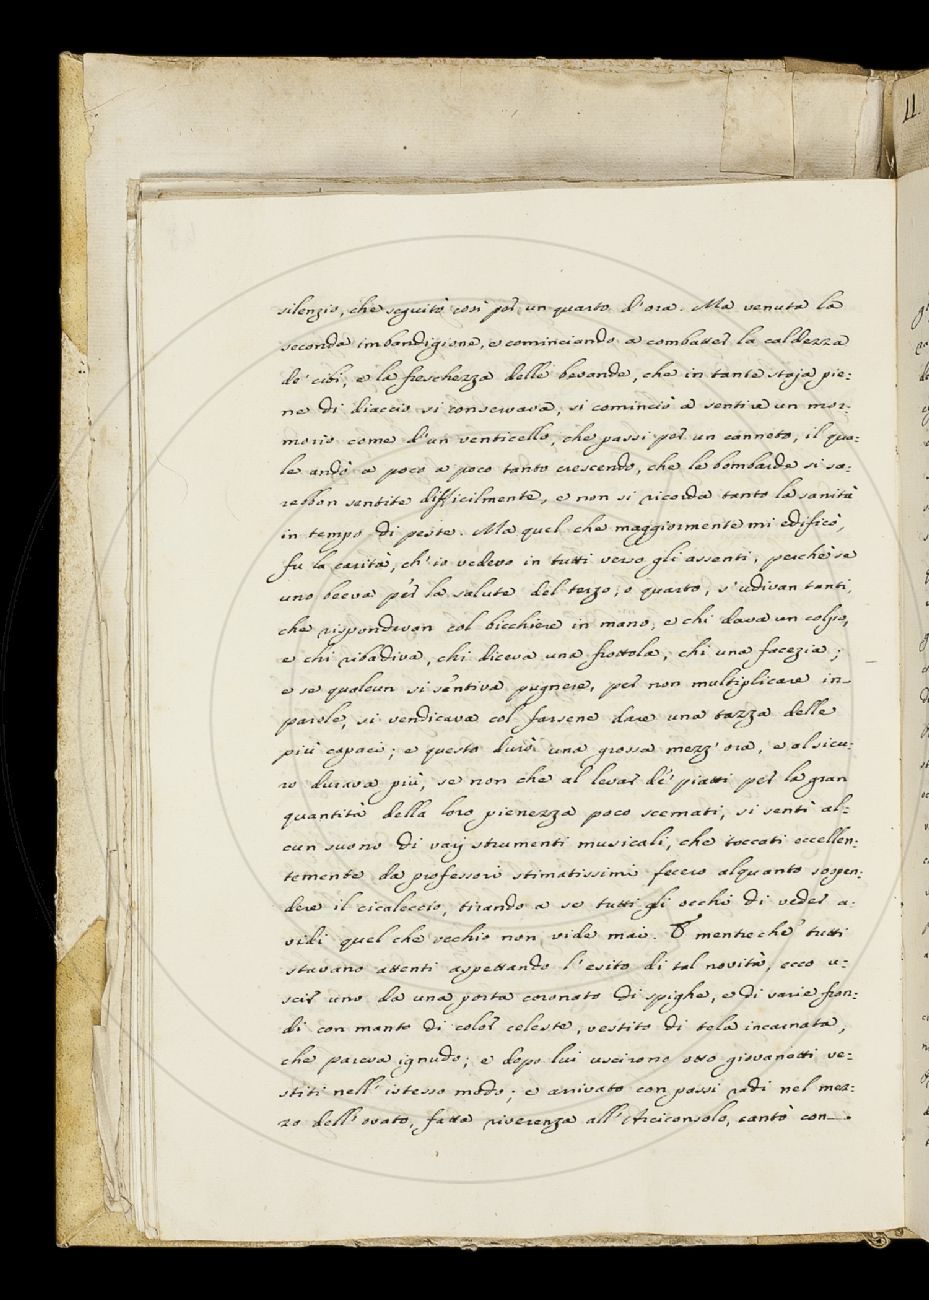 silenzio, che seguitò così per un quarto d'ora. Ma venuta la
seconda imbandigione, e cominciando a combatter la caldezza
de' cibi, e la freschezza delle bevande, che in tante staja pie:
ne di diaccio si conservava, si cominciò a sentire un mor:
morio come d'un venticello, che passi per un canneto, il qua:
le andò a poco a poco tanto crescendo, che le bombarde si sa:
rebbon sentite difficilmente, e non si ricorda tanto la sanità
in tempo di peste. Ma quel che maggiormente mi edificò,
fu la carità, ch'io vedevo in tutti verso gli assenti; perchè se
uno beeva per la salute del terzo, o quarto, s'udivan tanti,
che rispondevan col bicchiere in mano, e chi dava un colpo,
e chi ribadiva, chi diceva una frottola, chi una facezia;
e se qualcun si sentiva pugnere, per non multiplicare in
parole, si vendicava col farsene dare una tazza delle
più capaci; e questo durò una grossa mezz'ora, e al sicu:
ro durava più, se non che al levar de' piatti per la gran
quantità della loro pienezza poco scemati, si sentì al:
cun suono di varj strumenti musicali, che toccati eccellen:
temente da professori stimatissimi fecero alquanto sospen:
dere il cicaleccio, tirando a se tutti gli occhi di veder a:
vidi quel che occhio non vide mai. E mentre che tutti
stavano attenti aspettando l'esito di tal novità, ecco u:
scir uno da una porta coronato di spighe, e di varie fron:
di con manto di color celeste, vestito di tela incarnata,
che pareva ignudo; e dopo lui uscirono otto giovanetti ve:
stiti nell'istesso modo; e arrivato con passi radi nel mez:
zo dell'ovato, fatta riverenza all'Arciconsolo, cantò con
11